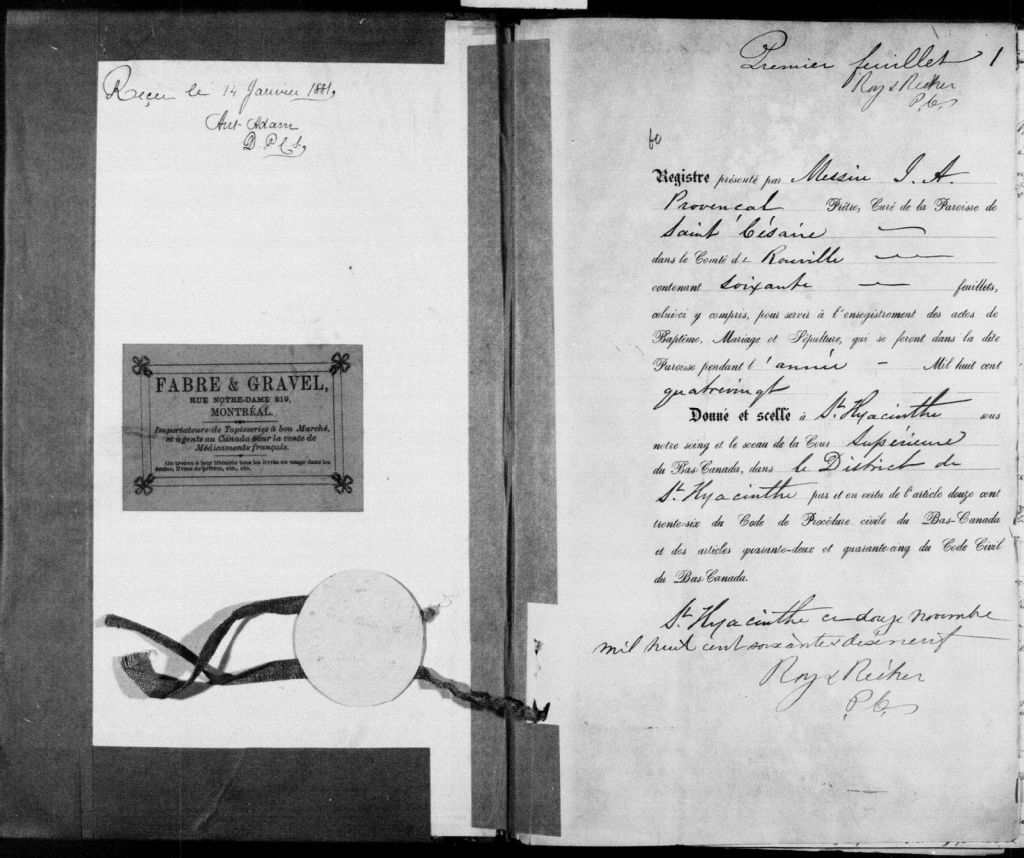 Reçu le 14 Janvier 1881,
Ant. Adam
D. P. C. S.
FABRE & GRAVEL,
RUE NOTRE-DAME 219,
MONTRÉAL.
Importateurs de Tapisseries à bon Marché,
et agents au Canada pour la vente de
Médicaments français.
On trouve à leur librairie tous les livres en usage dans les
écoles, livres de prières, etc., etc.
Premier feuillet 1
Roy & Richer
P. C. S.
Registre présenté par Messire J. A.
Provençal Prêtre, Curé de la Paroisse de
Saint Césaire
dans le Comté de Rouville
contenant soixante feuillets,
celui-ci y compris, pour servir à l'enregistrement des actes de
Baptême, Mariage et Sépulture, qui se feront dans la dite
Paroisse pendant l'année Mil huit cent
quatrevingt
Donné et scellé à St. Hyacinthe sous
notre seing et le sceau de la Cour Supérieure
du Bas-Canada, dans le District de
St. Hyacinthe par et en vertu de l'article douze cent
trente-six du Code de Procédure civile du Bas-Canada
et des articles quarante-deux et quarante-cinq du Code Civil
du Bas-Canada.
St. Hyacinthe ce douze novembre
mil huit cent soixante & dix neuf
Roy & Richer
P. C. S.